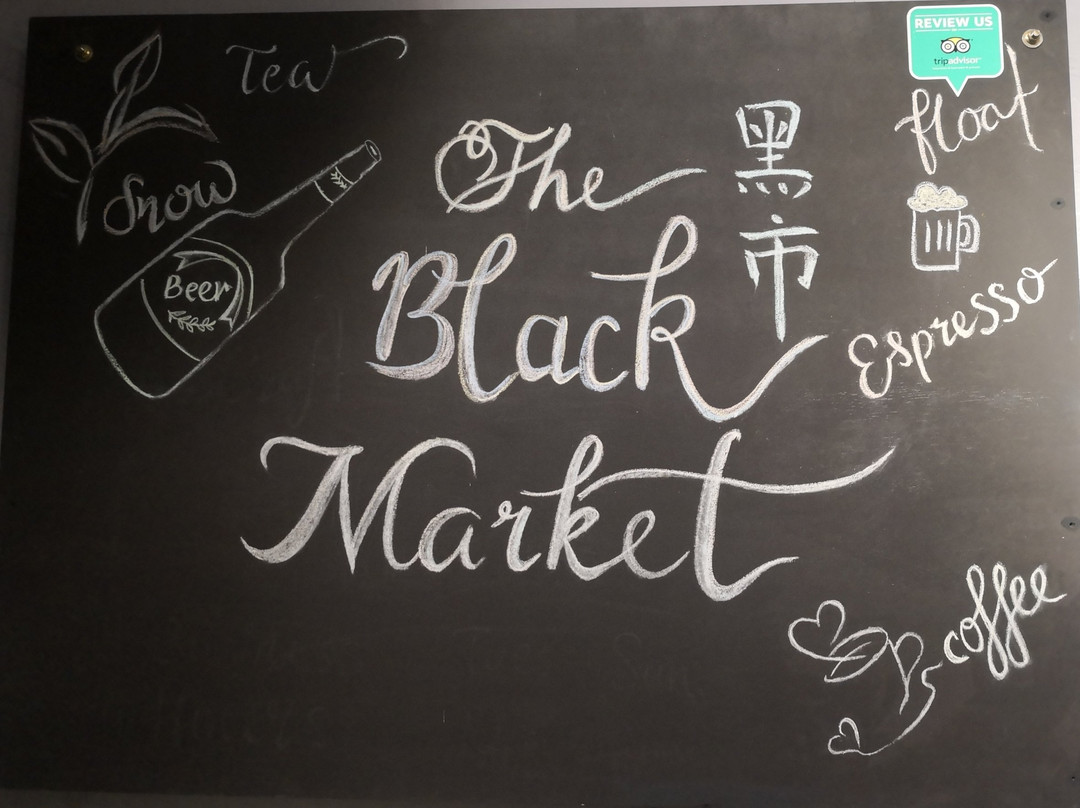 Tea
Snow
Beer
The
Black
Market
黑
市
REVIEW US
tripadvisor
float
Espresso
coffee